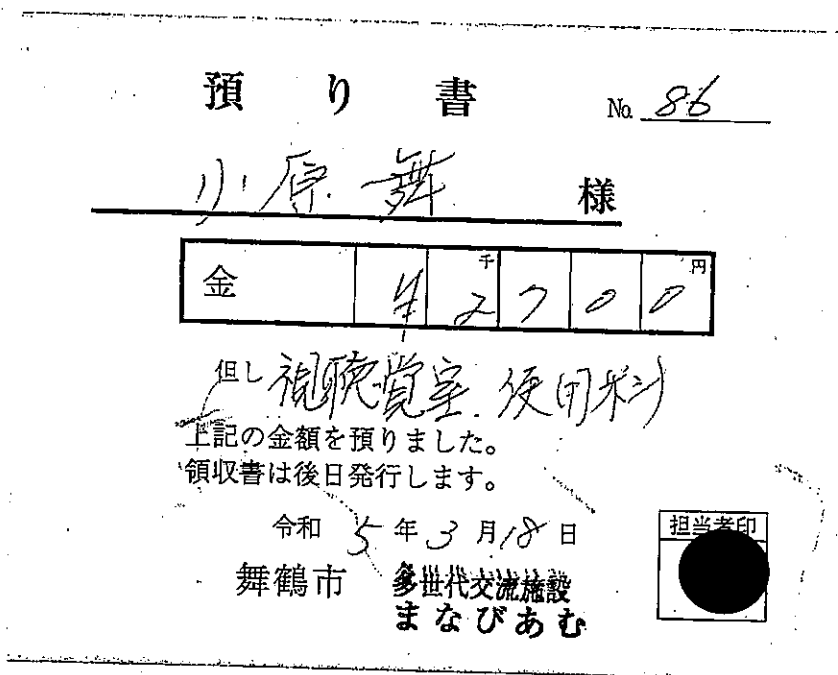 預り書 No. 86
小原 舞 様
金 ¥2700 千 円
但し 視聴覚室 使用料
上記の金額を預りました。
領収書は後日発行します。
令和 5 年 3 月 18 日
担当者印
舞鶴市 多世代交流施設
まなびあむ